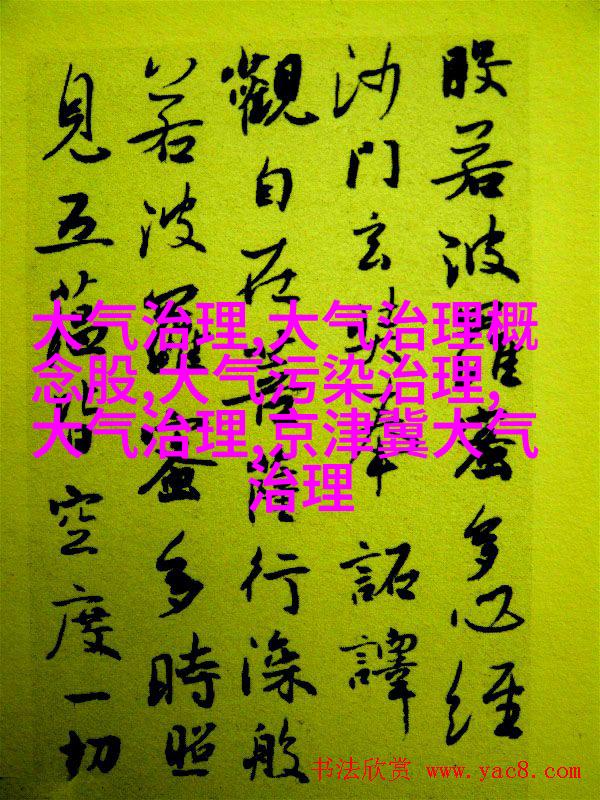 般若波羅蜜多心經
沙門玄奘奉 詔譯
觀自在菩薩行深般
若波羅蜜多時照
見五蘊皆空度一切
大气治理,大气治理概
念股,大气污染治理,
大气治理,京津冀大气
治理
书法欣赏 www.yac8.com